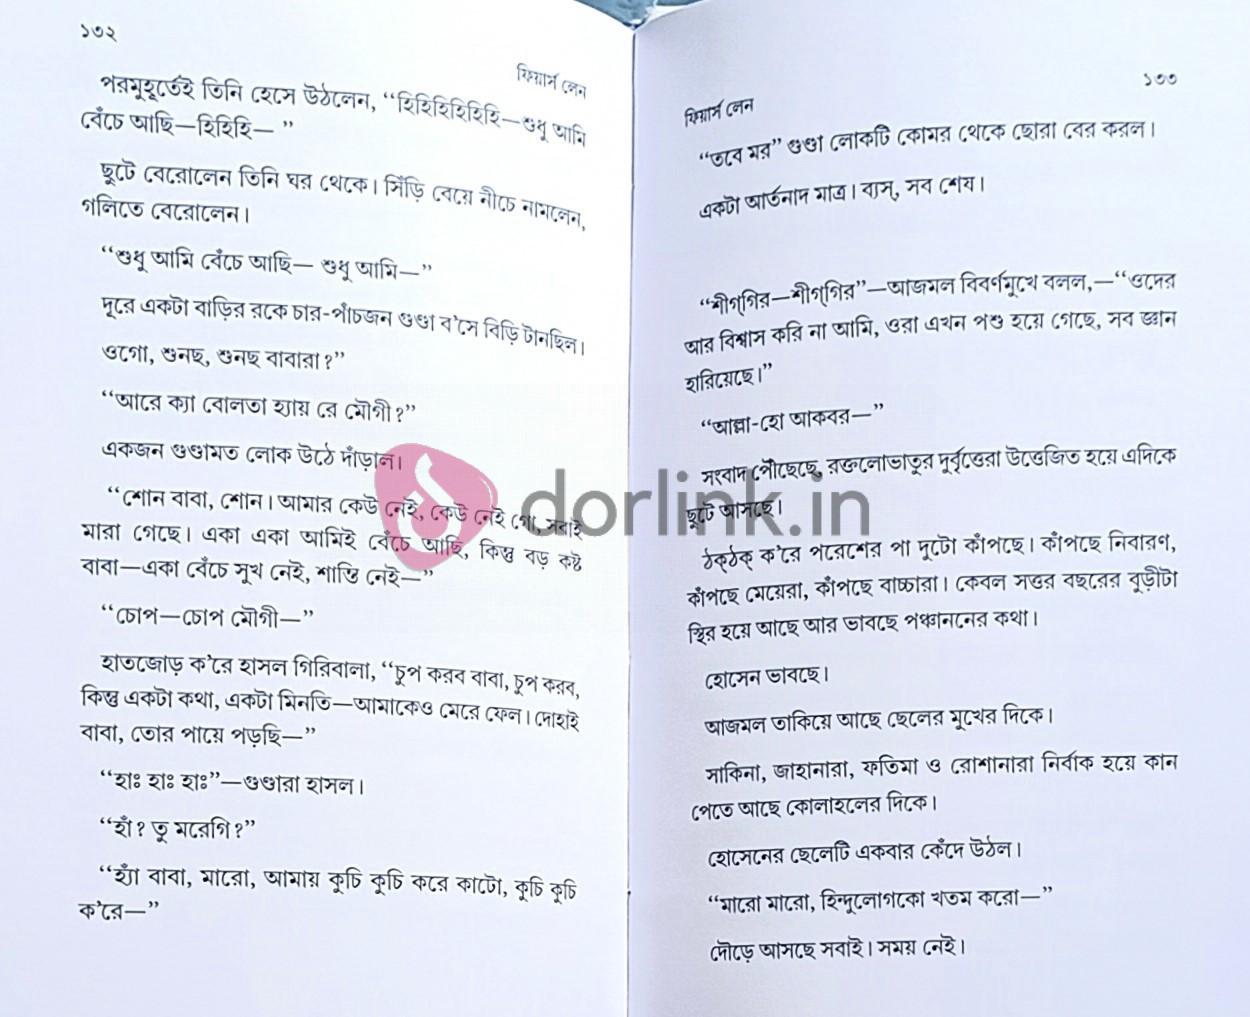 ১৩২
ফিয়ার্স লেন
পরমুহূর্তেই তিনি হেসে উঠলেন, “হিহিহিহিহিহি—শুধু আমি
বেঁচে আছি—হিহিহি— ”
ছুটে বেরোলেন তিনি ঘর থেকে। সিঁড়ি বেয়ে নীচে নামলেন,
গলিতে বেরোলেন।
“শুধু আমি বেঁচে আছি— শুধু আমি—”
দূরে একটা বাড়ির রকে চার-পাঁচজন গুণ্ডা ব’সে বিড়ি টানছিল।
ওগো, শুনছ, শুনছ বাবারা?”
“আরে ক্যা বোলতা হ্যায় রে মৌগী?”
একজন গুণ্ডামত লোক উঠে দাঁড়াল।
“শোন বাবা, শোন। আমার কেউ নেই, কেউ নেই গো, সবাই
মারা গেছে। একা একা আমিই বেঁচে আছি, কিন্তু বড় কষ্ট
বাবা—একা বেঁচে সুখ নেই, শান্তি নেই—”
“চোপ—চোপ মৌগী—”
হাতজোড় ক’রে হাসল গিরিবালা, “চুপ করব বাবা, চুপ করব,
কিন্তু একটা কথা, একটা মিনতি—আমাকেও মেরে ফেল। দোহাই
বাবা, তোর পায়ে পড়ছি—”
“হাঃ হাঃ হাঃ”—গুণ্ডারা হাসল।
“হাঁ? তু মরেগি?”
“হ্যাঁ বাবা, মারো, আমায় কুচি কুচি করে কাটো, কুচি কুচি
ক’রে—”
১৩৩
ফিয়ার্স লেন
“তবে মর” গুণ্ডা লোকটি কোমর থেকে ছোরা বের করল।
একটা আর্তনাদ মাত্র। ব্যস্, সব শেষ।
“শীগ্‌গির—শীগ্‌গির”—আজমল বিবর্ণমুখে বলল,—“ওদের
আর বিশ্বাস করি না আমি, ওরা এখন পশু হয়ে গেছে, সব জ্ঞান
হারিয়েছে।”
“আল্লা-হো আকবর—”
সংবাদ পৌঁছেছে, রক্তলোভাতুর দুর্বৃত্তেরা উত্তেজিত হয়ে এদিকে
ছুটে আসছে।
ঠক্‌ঠক্ ক’রে পরেশের পা দুটো কাঁপছে। কাঁপছে নিবারণ,
কাঁপছে মেয়েরা, কাঁপছে বাচ্চারা। কেবল সত্তর বছরের বুড়ীটা
স্থির হয়ে আছে আর ভাবছে পঞ্চাননের কথা।
হোসেন ভাবছে।
আজমল তাকিয়ে আছে ছেলের মুখের দিকে।
সাকিনা, জাহানারা, ফতিমা ও রোশানারা নির্বাক হয়ে কান
পেতে আছে কোলাহলের দিকে।
হোসেনের ছেলেটি একবার কেঁদে উঠল।
“মারো মারো, হিন্দুলোগকো খতম করো—”
দৌড়ে আসছে সবাই। সময় নেই।
dorlink.in